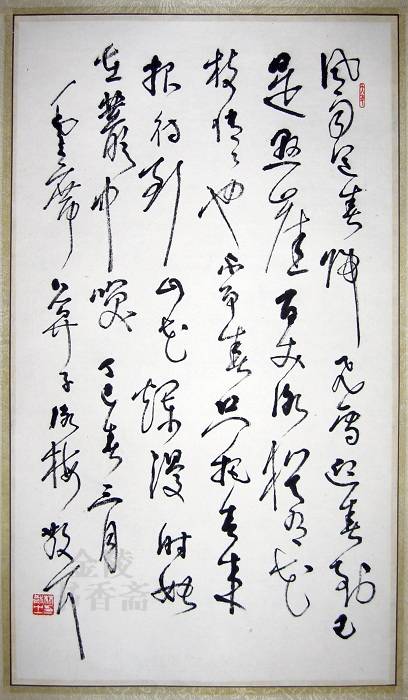 风雨送春归飞雪迎春到已
是悬崖百丈冰犹有花
枝俏俏也不争春只把春来
报待到山花烂漫时她
在丛中笑 丁巳春三月
毛主席 卜算子咏梅
金陵
书香斋